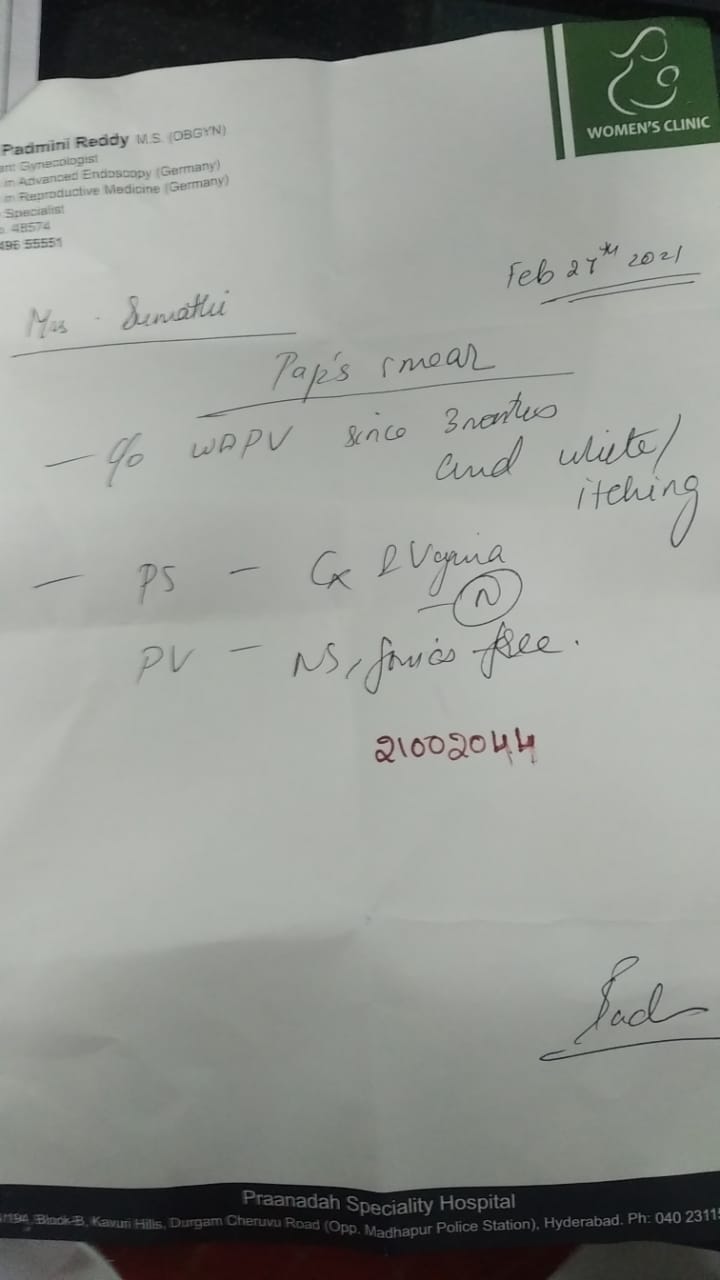 WOMEN'S CLINIC
Padmini Reddy M.S. (OBGYN)
ant Gynecologist
in Advanced Endoscopy (Germany)
in Reproductive Medicine (Germany)
Specialist
48574
496 55551
Feb 27th 2021
Mrs. Sumathi
Pap's smear
- c/o WDPV since 3 months
and white/
itching
- PS - Cx & Vagina
- N
PV - NS, fornices free.
21002044
Praanadah Speciality Hospital
Block-B, Kavuri Hills, Durgam Cheruvu Road (Opp. Madhapur Police Station), Hyderabad. Ph: 040 2311